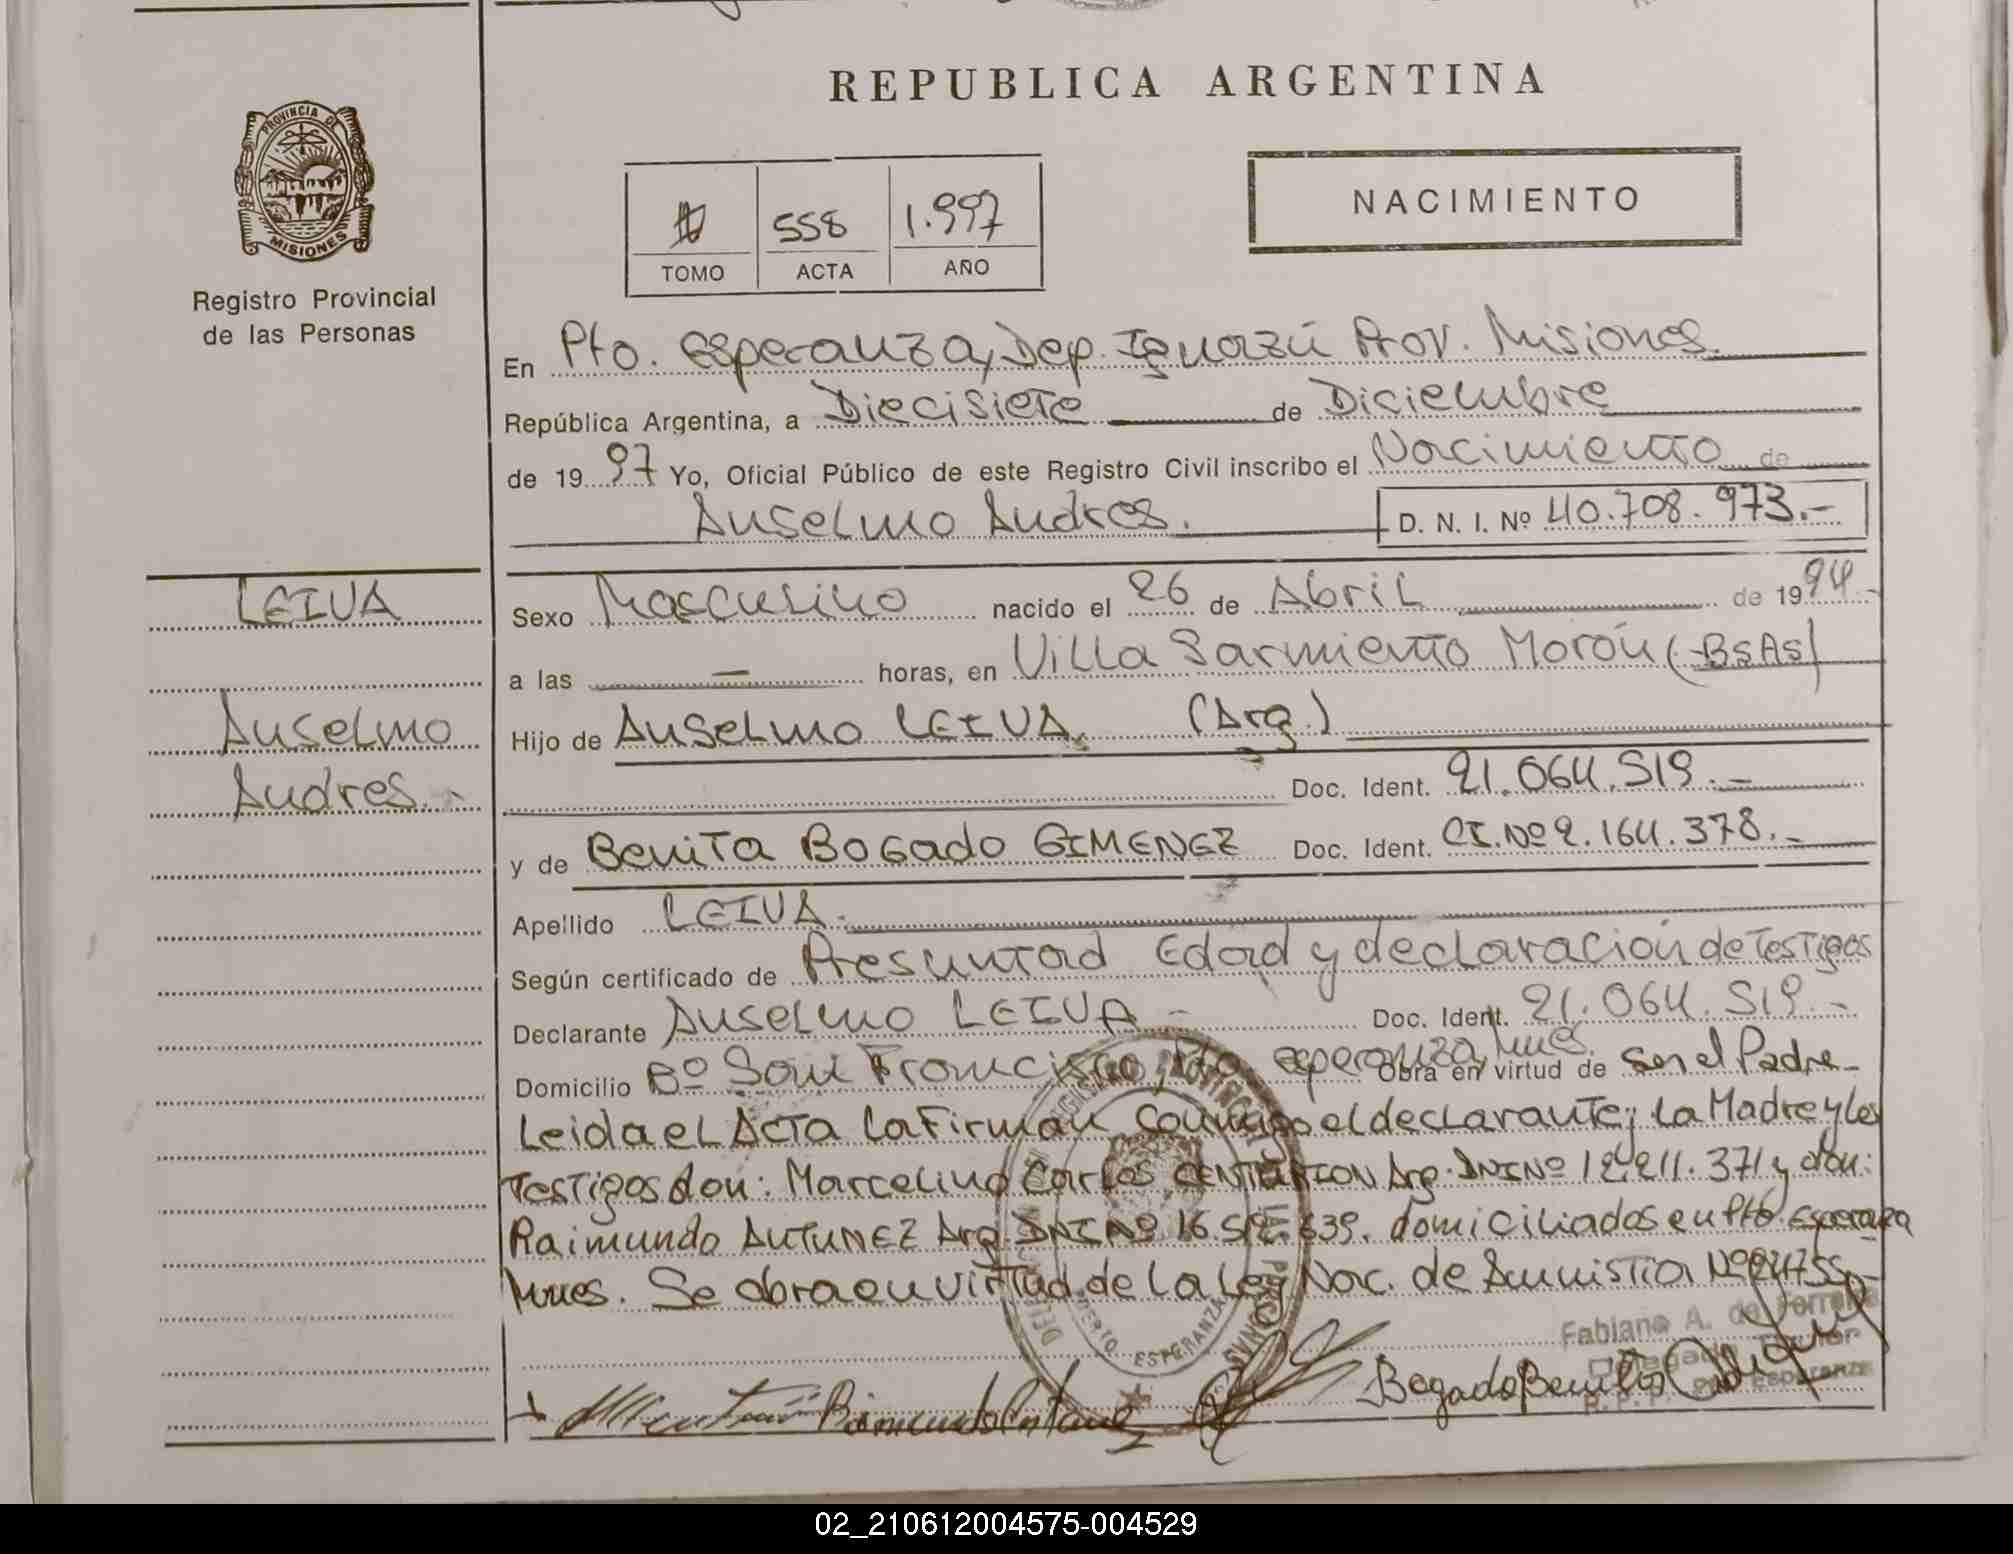 REPUBLICA ARGENTINA
PROVINCIA DE
MISIONES
Registro Provincial
de las Personas
558
1.997
TOMO ACTA AÑO
NACIMIENTO
En Pto. Esperanza, Dep. Iguazú Prov. Misiones.
República Argentina, a Diecisiete de Diciembre
de 1997 Yo, Oficial Público de este Registro Civil inscribo el Nacimiento de
Anselmo Andres. D. N. I. Nº 40.708.973.-
LEIVA
Anselmo
Andres.-
Sexo Masculino nacido el 26 de Abril de 1994.-
a las — horas, en Villa Sarmiento Morón (-BsAs)
Hijo de Anselmo LEIVA. (Arg.)
Doc. Ident. 21.064.519.-
y de Benita Bogado GIMENEZ Doc. Ident. CI. Nº 2.164.378.-
Apellido LEIVA.
Según certificado de Presuntad Edad y declaración de Testigos
Declarante Anselmo LEIVA - Doc. Ident. 21.064.519.-
Domicilio Bº San Francisco, Pto esperanza, Mnes. Obra en virtud de ser el Padre-
Leida el Acta la Firman conmigo el declarante; la Madre y los
Testigos don: Marcelino Carlos CENTURION Arg. DNI Nº 12.211.371 y don:
Raimundo ANTUNEZ Arg. DNI Nº 16.512.639. domiciliados en Pto. Esperanza
Mnes. Se obra en virtud de la Ley Nac. de Amnistia Nº 24755.-
PUERTO ESPERANZA
Fabiano A. de
Delegado Titular
R. P. P. Pto Esperanza
Raimundo Antunez
Bogado Benita
02_210612004575-004529